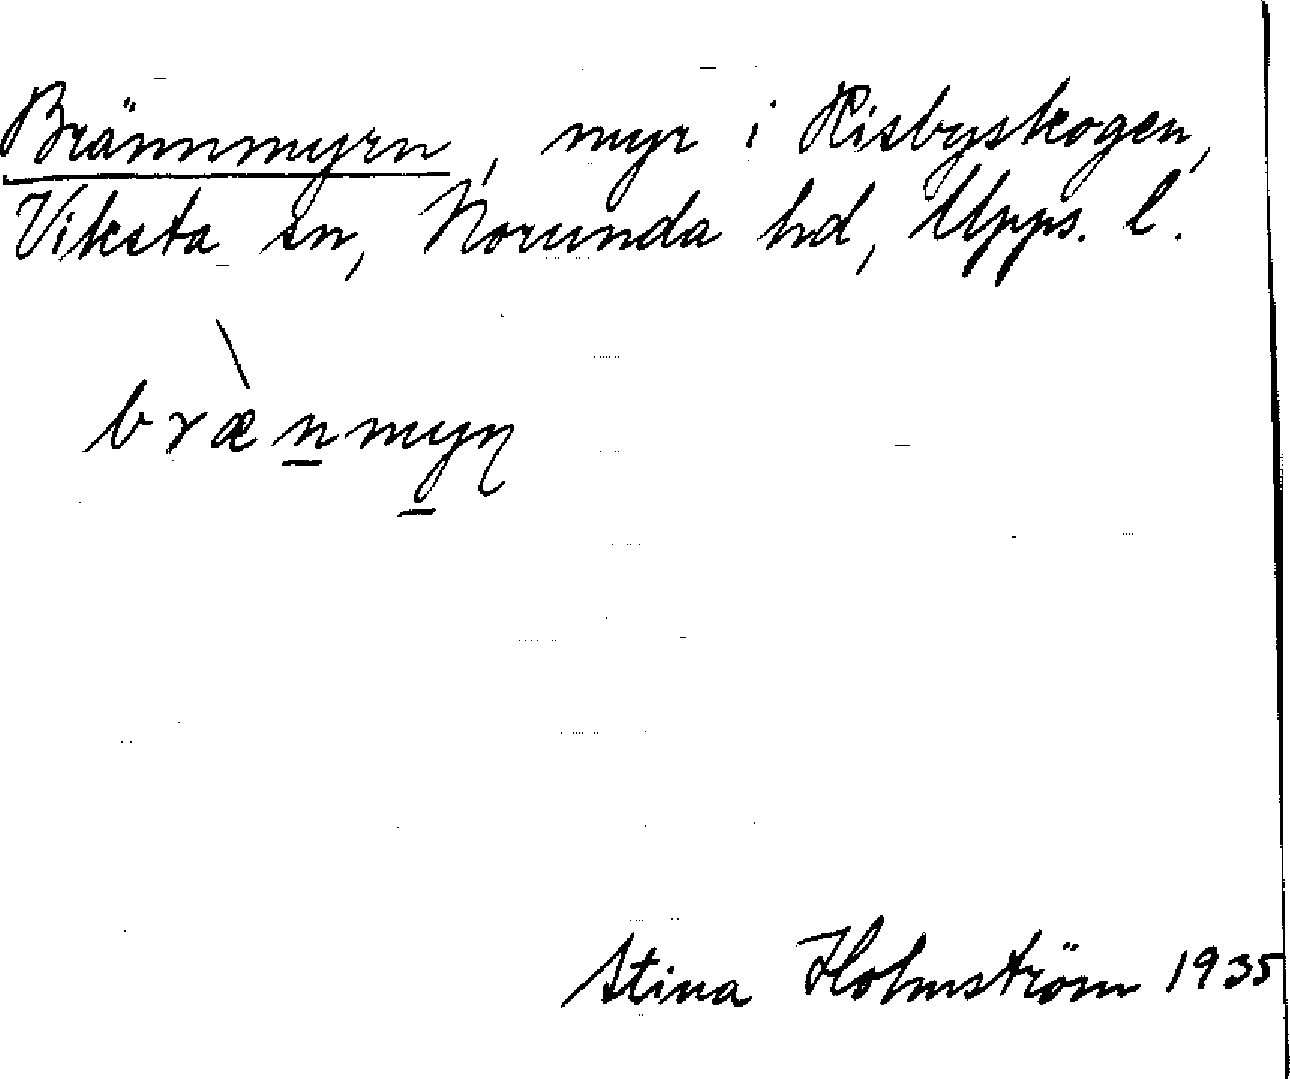 Brännmyrn, myr i Risbyskogen,
Viksta sn, Norunda hd, Upps. l.
bræ̀n̲my̲ɳ
Stina Holmström 1935